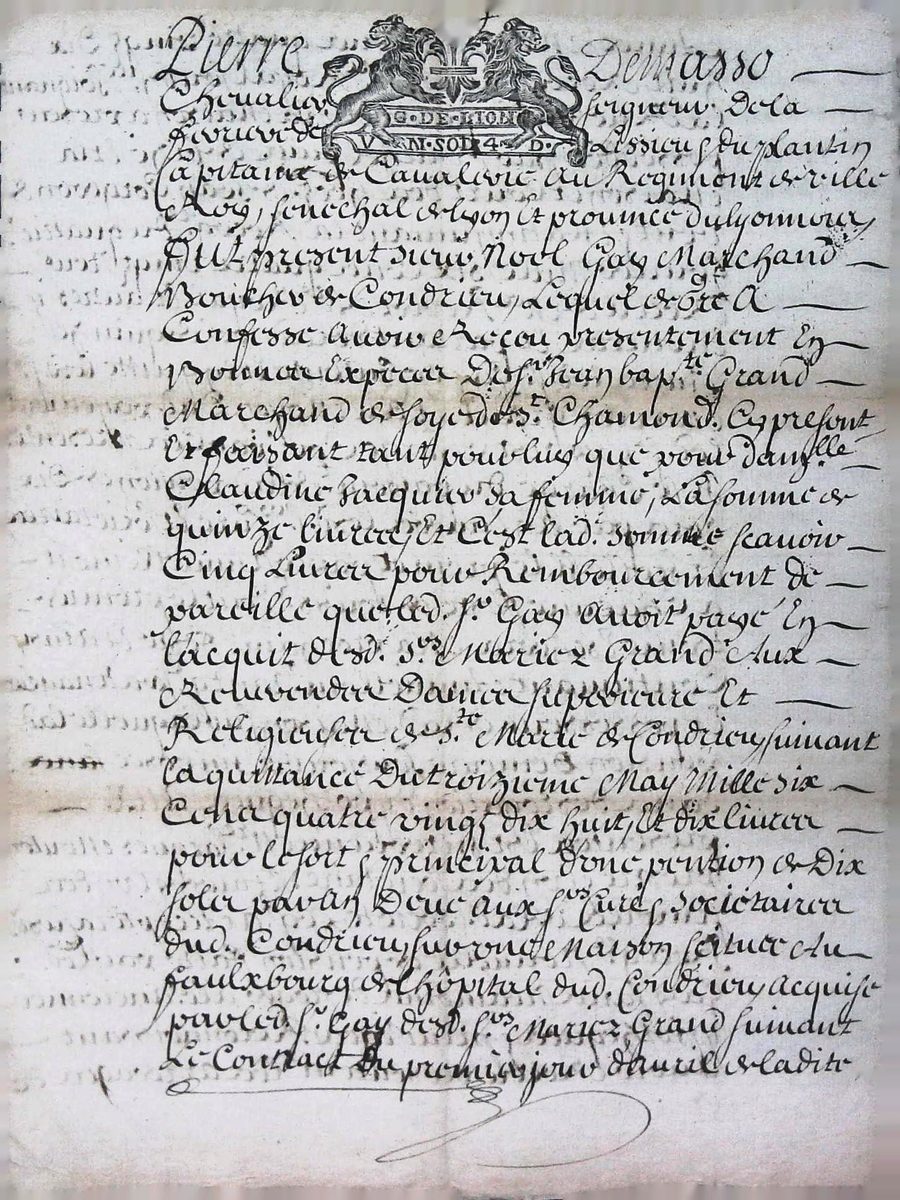 Pierre Demasso
G · DE · LION
V N · SOL 4 D ·
Chevalier seigneur de la
ferriere de Lissieu, du plantin
Capitaine de Cavalerie au Regiment de ville
Roy, senechal de lyon Et province du lyonnois,
fut present sieur Noel Gay Marchand
Boucher de Condrieu, Lequel de gré A
Confesse avoir Receu presentement En
Bonnes Especes De sr. Jean bapte. Grand
Marchand de soye de St. Chamond. Cy present
Et faisant tant pour luy que pour damlle
Claudine Jacquier sa femme, La somme de
quinze livres, Et C'est lad. somme scavoir
Cinq Livres pour Rembourcement de
pareille que led. sr. Gay avoit payé En
lacquit desd. srs. Mariez Grand Aux
Reuvendes Dames superieure Et
Religieuses de Ste. Marie de Condrieu, suivant
la quittance Du troizieme May Mille six
Cens quatre vingt dix huit, Et dix livres
pour le sort principal d'une pention de Dix
sols par an Deue aux srs. Curé, sociétaires
dud. Condrieu, sur une Maison scituée Au
faulxbourg de l'hôpital dud. Condrieu, acquise
par led. sr. Gay desd. srs. Mariez Grand suivant
Le Contract du premier jour d'avril de ladite